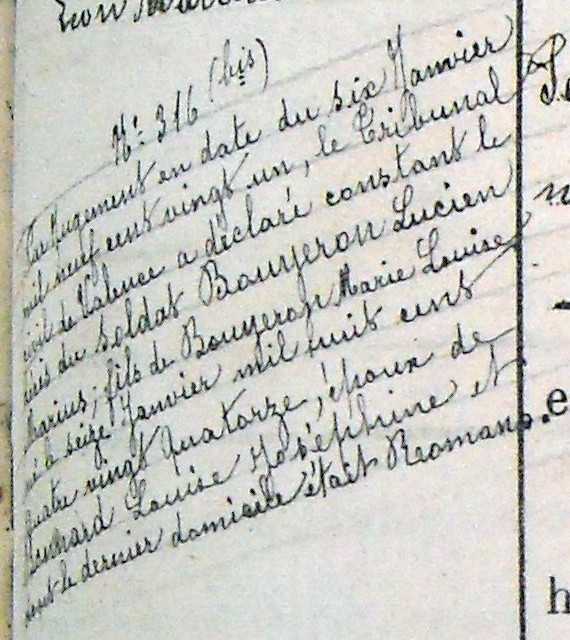 Nº 316 (bis)
Par Jugement en date du six Janvier
mil neuf cent vingt un, le Tribunal
civil de Valence a déclaré constant le
décès du soldat Bouyeron Lucien
Marius, fils de Bouyeron Marie Louise
né le seize Janvier mil huit cent
quatre vingt quatorze, époux de
Louise Joséphine et
dont le dernier domicile était Romans.